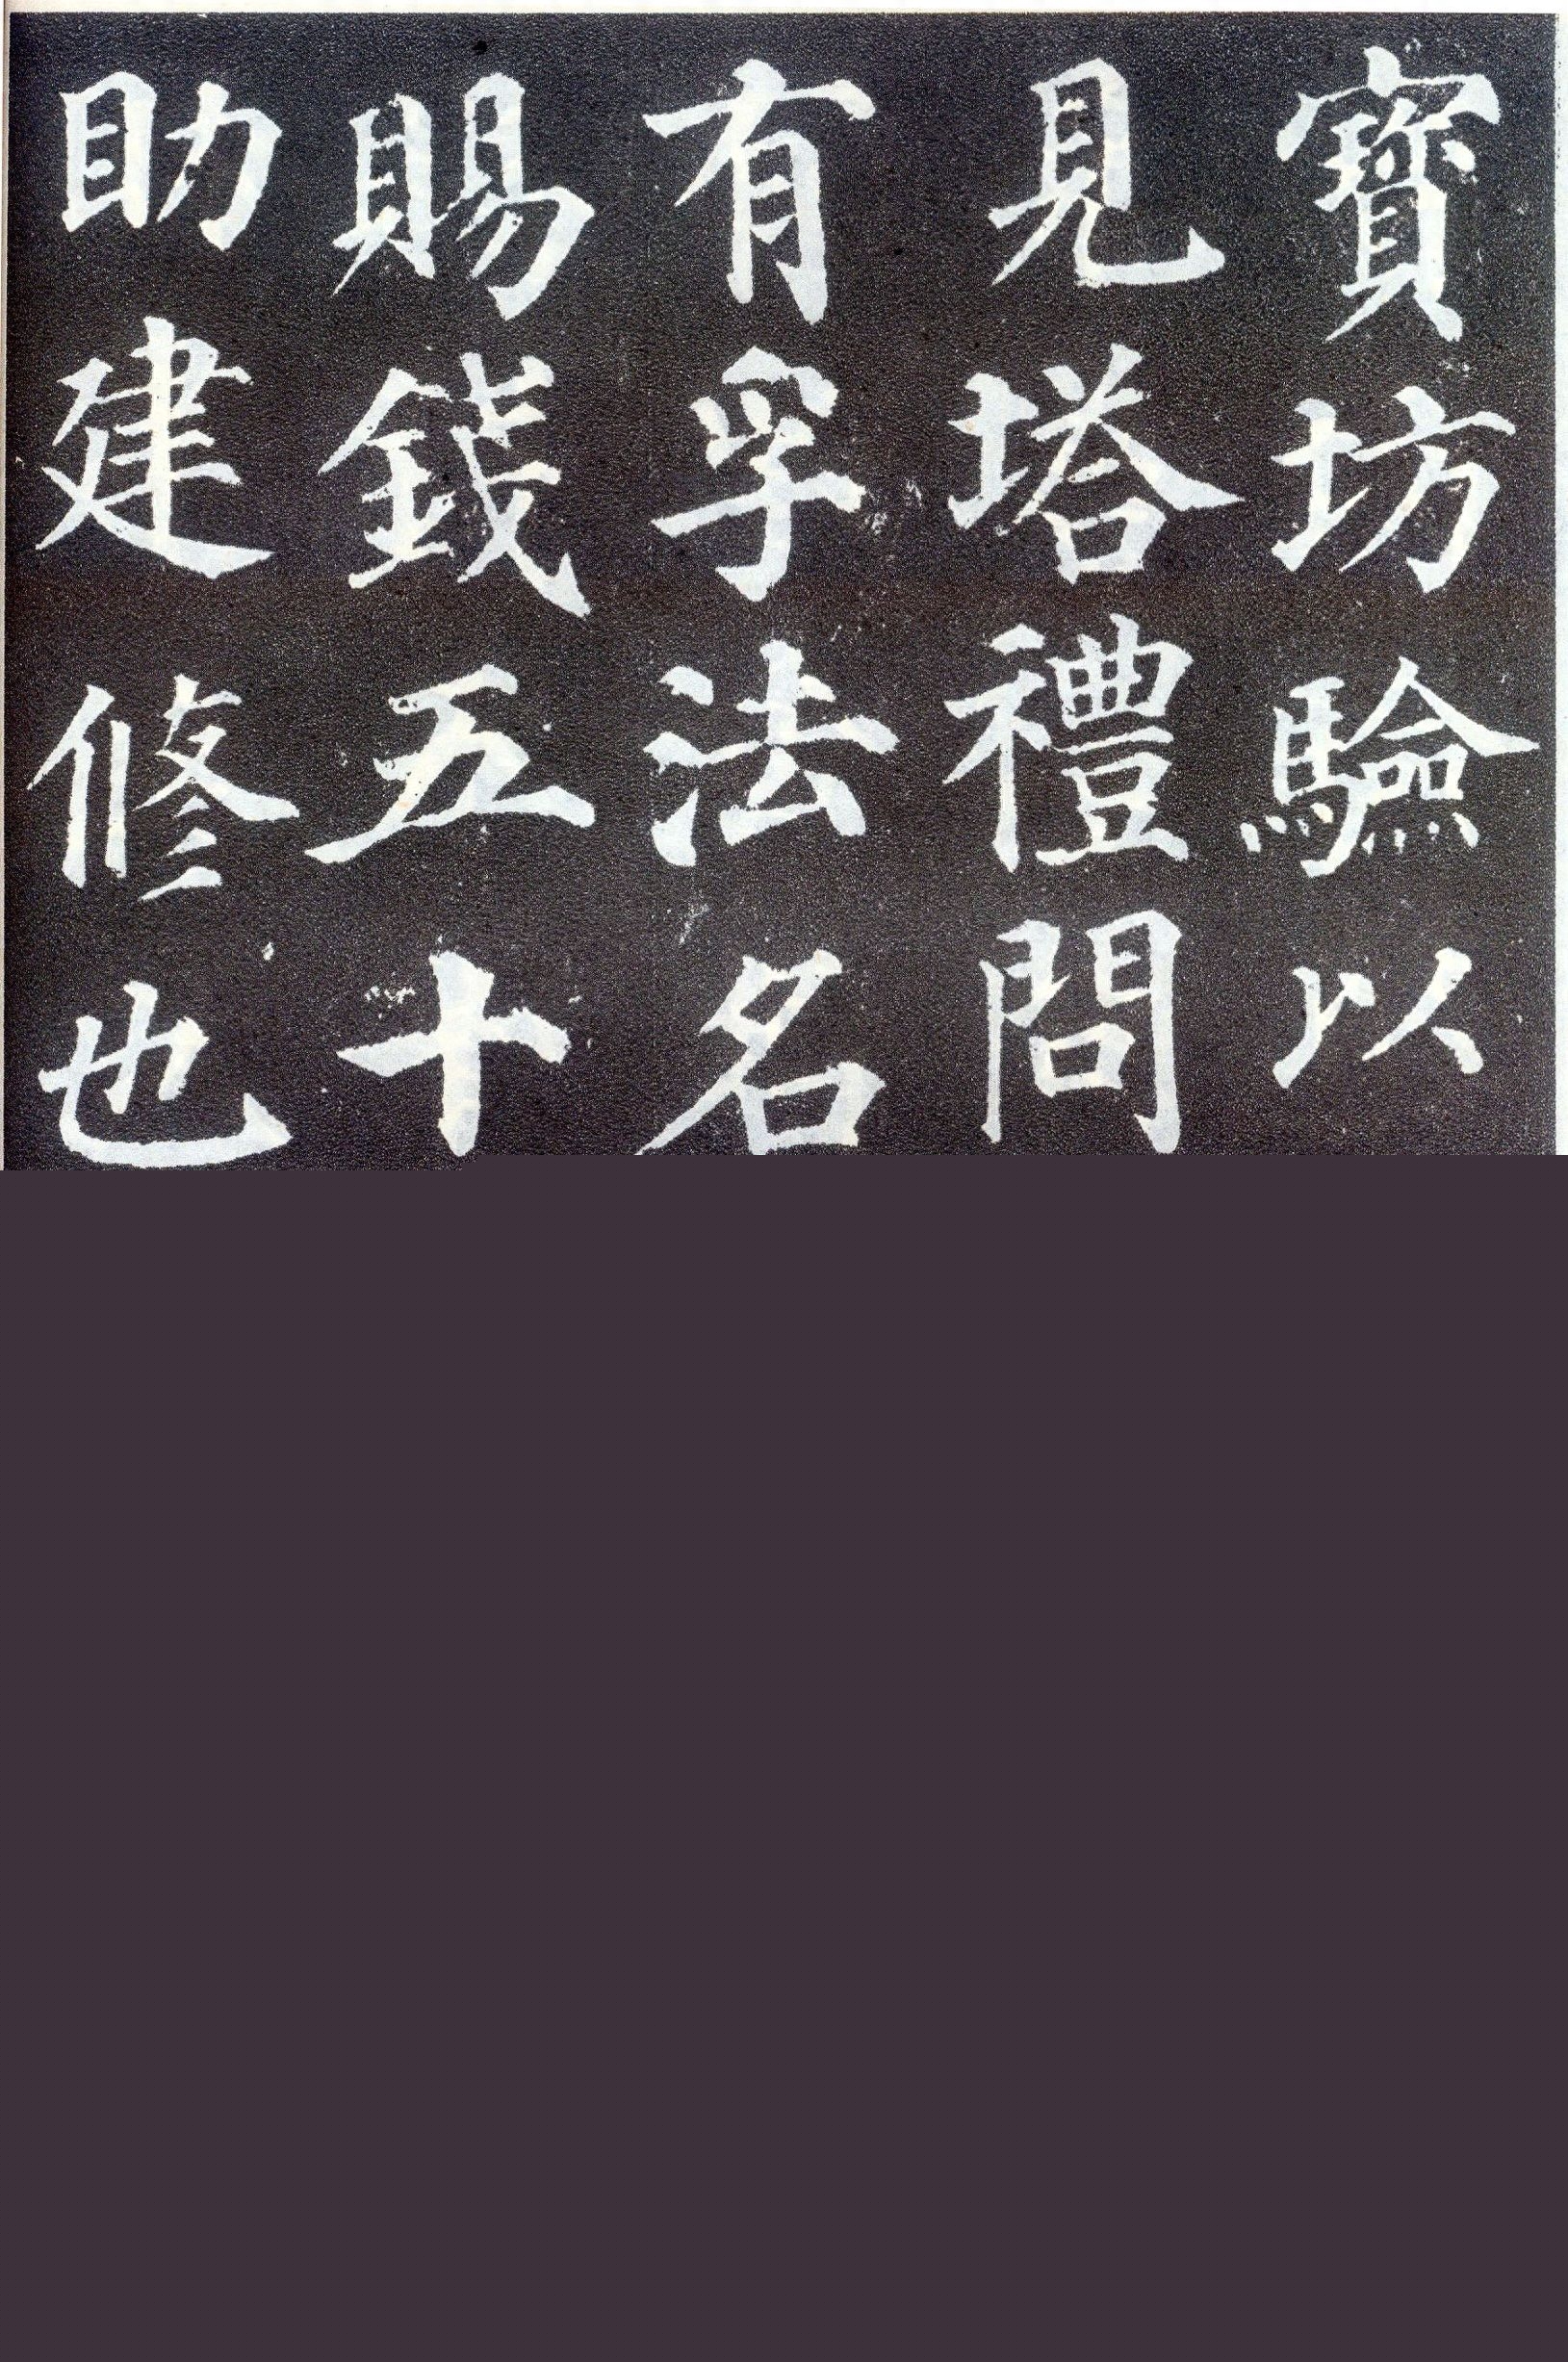 寶坊驗以
見塔禮問
有孚法名
賜錢五十
助建修也